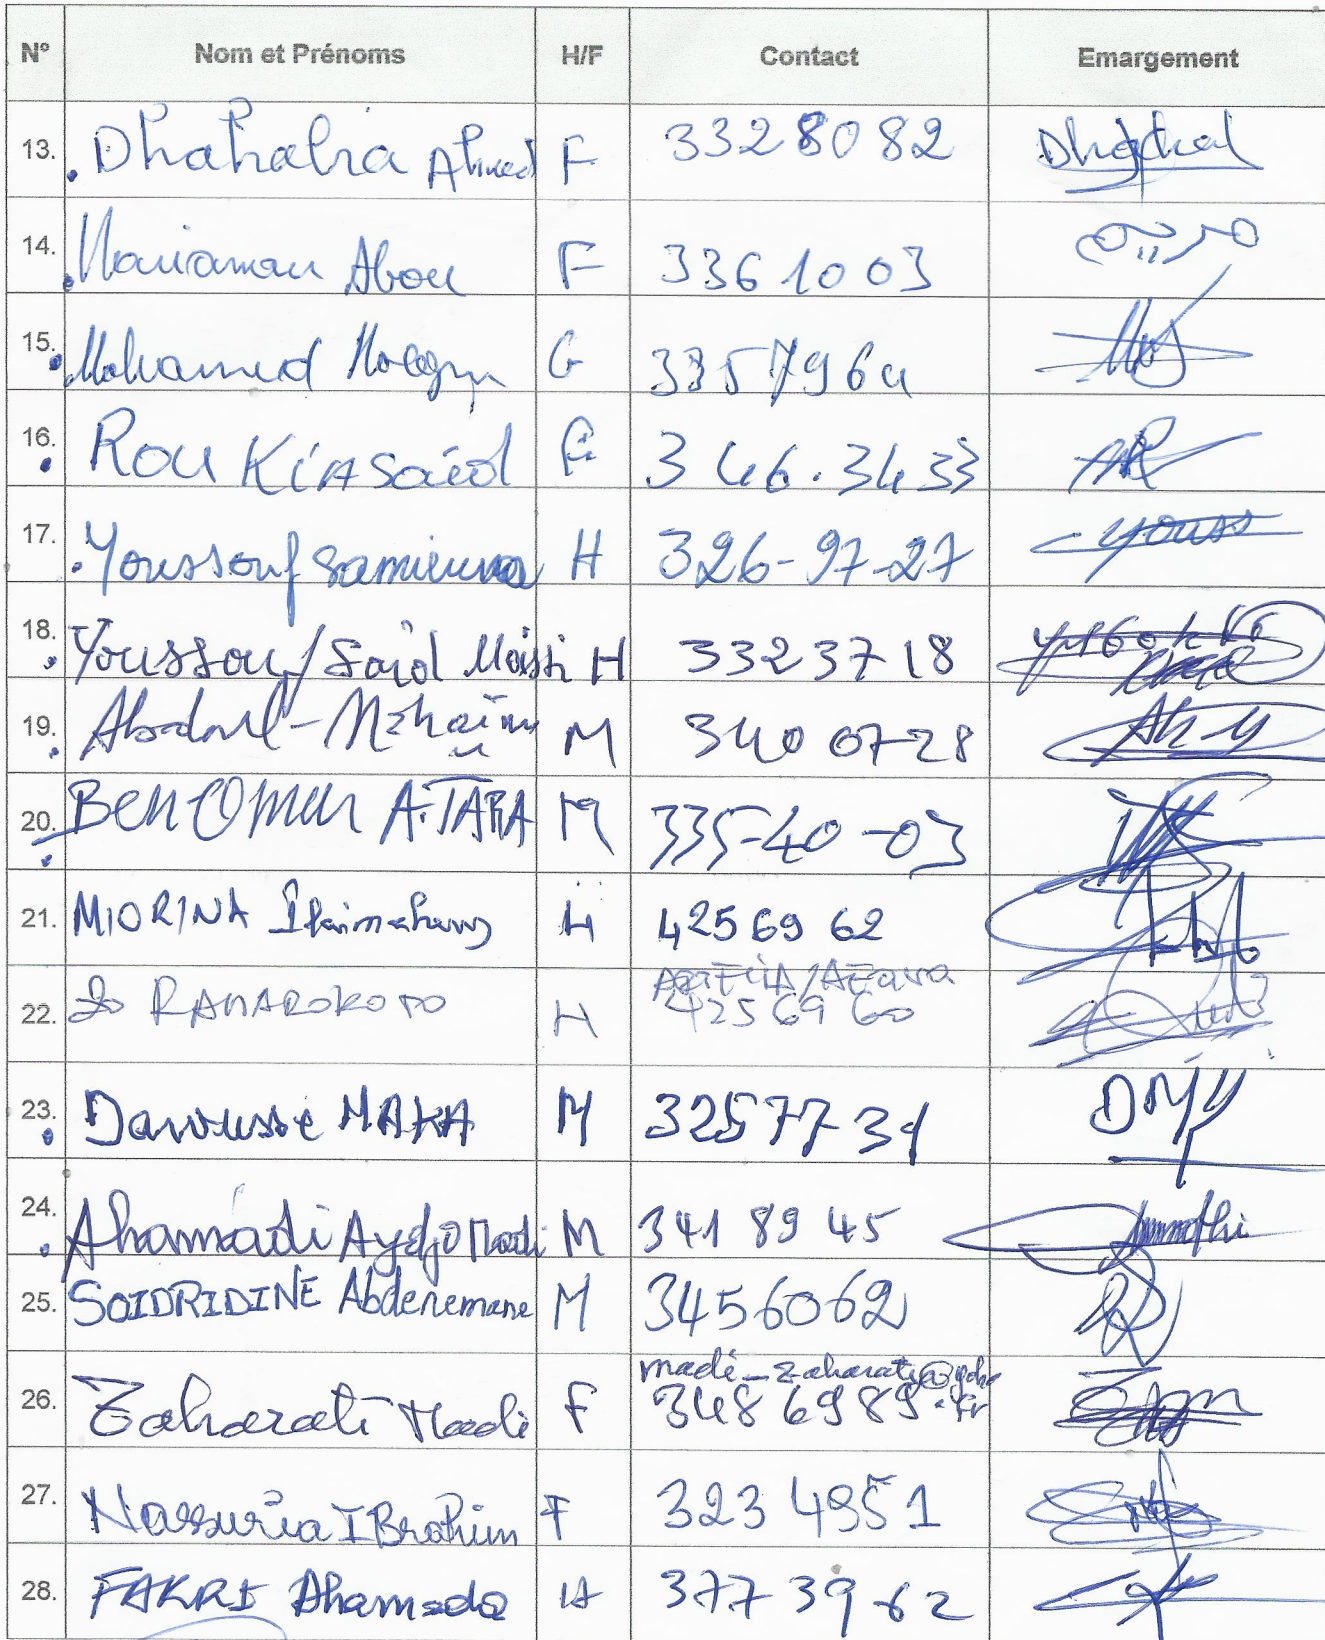 N° Nom et Prénoms H/F Contact Emargement
13. Dhahabia Ahmed F 3328082
14. Mariaman Abou F 336 10 03
15. Mohamed G 3357964
16. Rou KiA Saïd F 346.3433
17. Youssouf Samieuna H 326-97-27 youss
18. Youssouf Said Moissi H 332 37 18
19. Abdoul-Mzhaïm M 340 07-28
20. BEN OMAR A.TARA M 335-40-03
21. MIORINA H 425 69 62
22. RAMAROKOTO H 425 69 60
23. Daroussi MAKA M 32577 31 DMY
24. Ahamadi Aydjo Madi M 341 89 45
25. SOIDRIDINE Abderemane M 3456062
26. Zaharati Madi F madi_zaharati@yaho 348 6989 .fr
27. Nassuria IBrahim F 323 4951
28. FAKRI Ahamada H 377 39 62